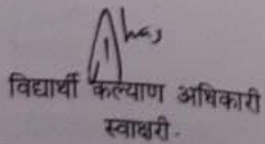 विद्यार्थी कल्याण अधिकारी
स्वाक्षरी.